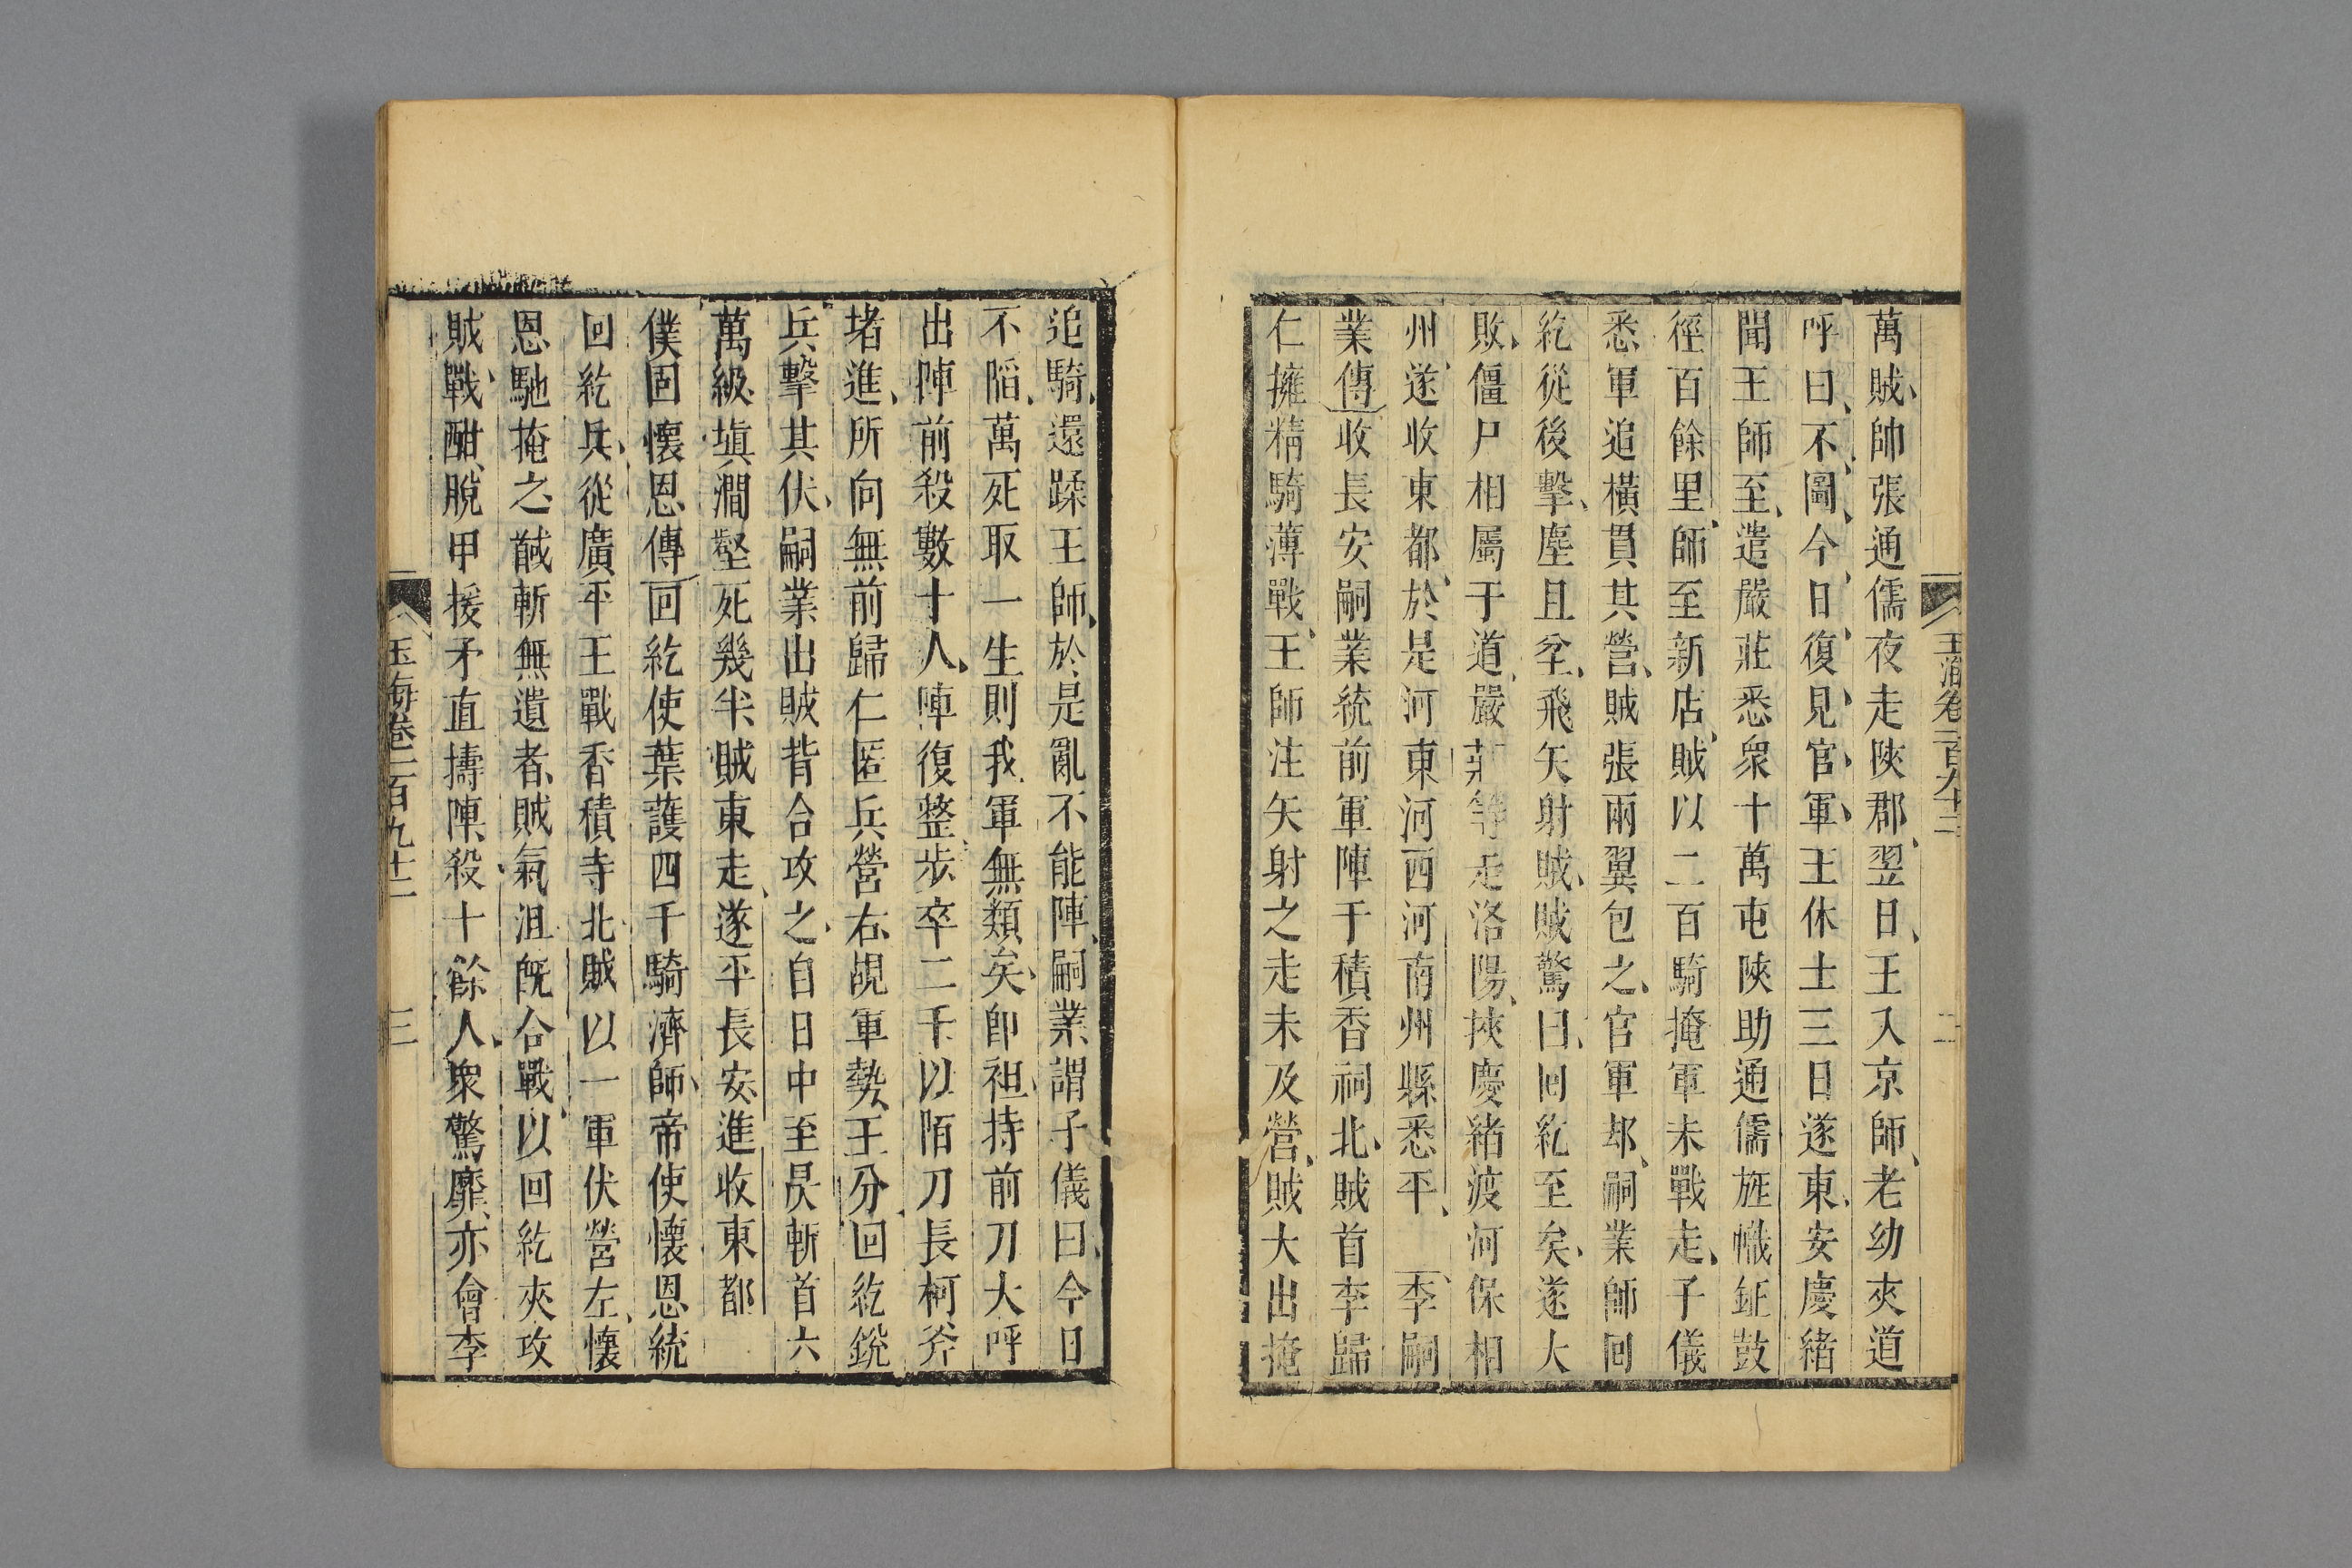 萬賊帥張通儒夜走陝郡翌日王入京師老幼夾道
呼曰不圖今日復見官軍王休士三日遂東安慶緒
聞王師至遣嚴莊悉衆十萬屯陝助通儒旌幟鉦鼓
徑百餘里師至新店賊以二百騎掩軍未戰走子儀
悉軍追橫貫其營賊張兩翼包之官軍却嗣業師回
紇從後擊塵且坌飛矢射賊賊驚曰回紇至矣遂大
敗僵尸相屬于道嚴莊等走洛陽挾慶緒渡河保相
州遂收東都於是河東河西河南州縣悉平 李嗣
業傳收長安嗣業統前軍陣于積香祠北賊首李歸
仁擁精騎薄戰王師注矢射之走未及營賊大出掩
玉海卷一百九十二
二
追騎還蹂王師於是亂不能陣嗣業謂子儀曰今日
不蹈萬死取一生則我軍無類矣卽袒持前刀大呼
出陣前殺數十人陣復整步卒二千以陌刀長柯斧
堵進所向無前歸仁匿兵營右覘軍勢王分回紇銳
兵擊其伏嗣業出賊背合攻之自日中至昃斬首六
萬級塡澗壑死幾半賊東走遂平長安進收東都
僕固懷恩傳回紇使葉護四千騎濟師帝使懷恩統
回紇兵從廣平王戰香積寺北賊以一軍伏營左懷
恩馳掩之馘斬無遺者賊氣沮旣合戰以回紇夾攻
賊戰酣脫甲援矛直擣陳殺十餘人衆驚靡亦會李
玉海卷一百九十二
三